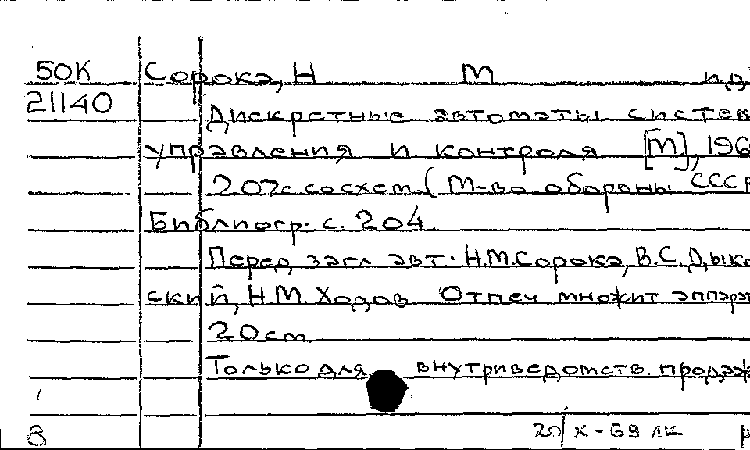 50К Сорока, Н М и др
21140 Дискретные автоматы систем
управления и контроля [М], 196
202с со схем. (М-во обороны СССР
Библиогр. с. 204.
Перед загл авт. Н.М.Сорока, В.С.Дыка
ский, Н.М Ходов Отпеч множит аппарат
20см
Только для внутриведомств. продаж
8 20/X-69 ЛК р